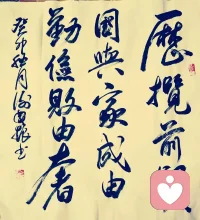 歷攬前
國與家成由
勤儉敗由奢
癸卯
月
書